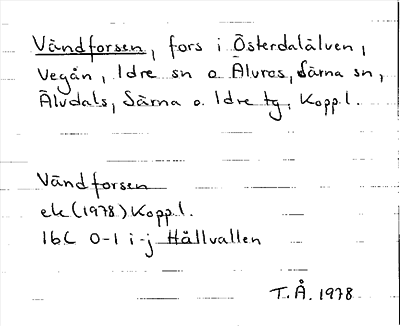 Vändforsen, fors i Österdalälven,
Vegån, Idre sn o Älvros, Särna sn,
Älvdals, Särna o. Idre tg, Kopp.l.
Vändforsen
ek (1978) Kopp.l.
16C 0-1 i-j Hällvallen
T.Å. 1978